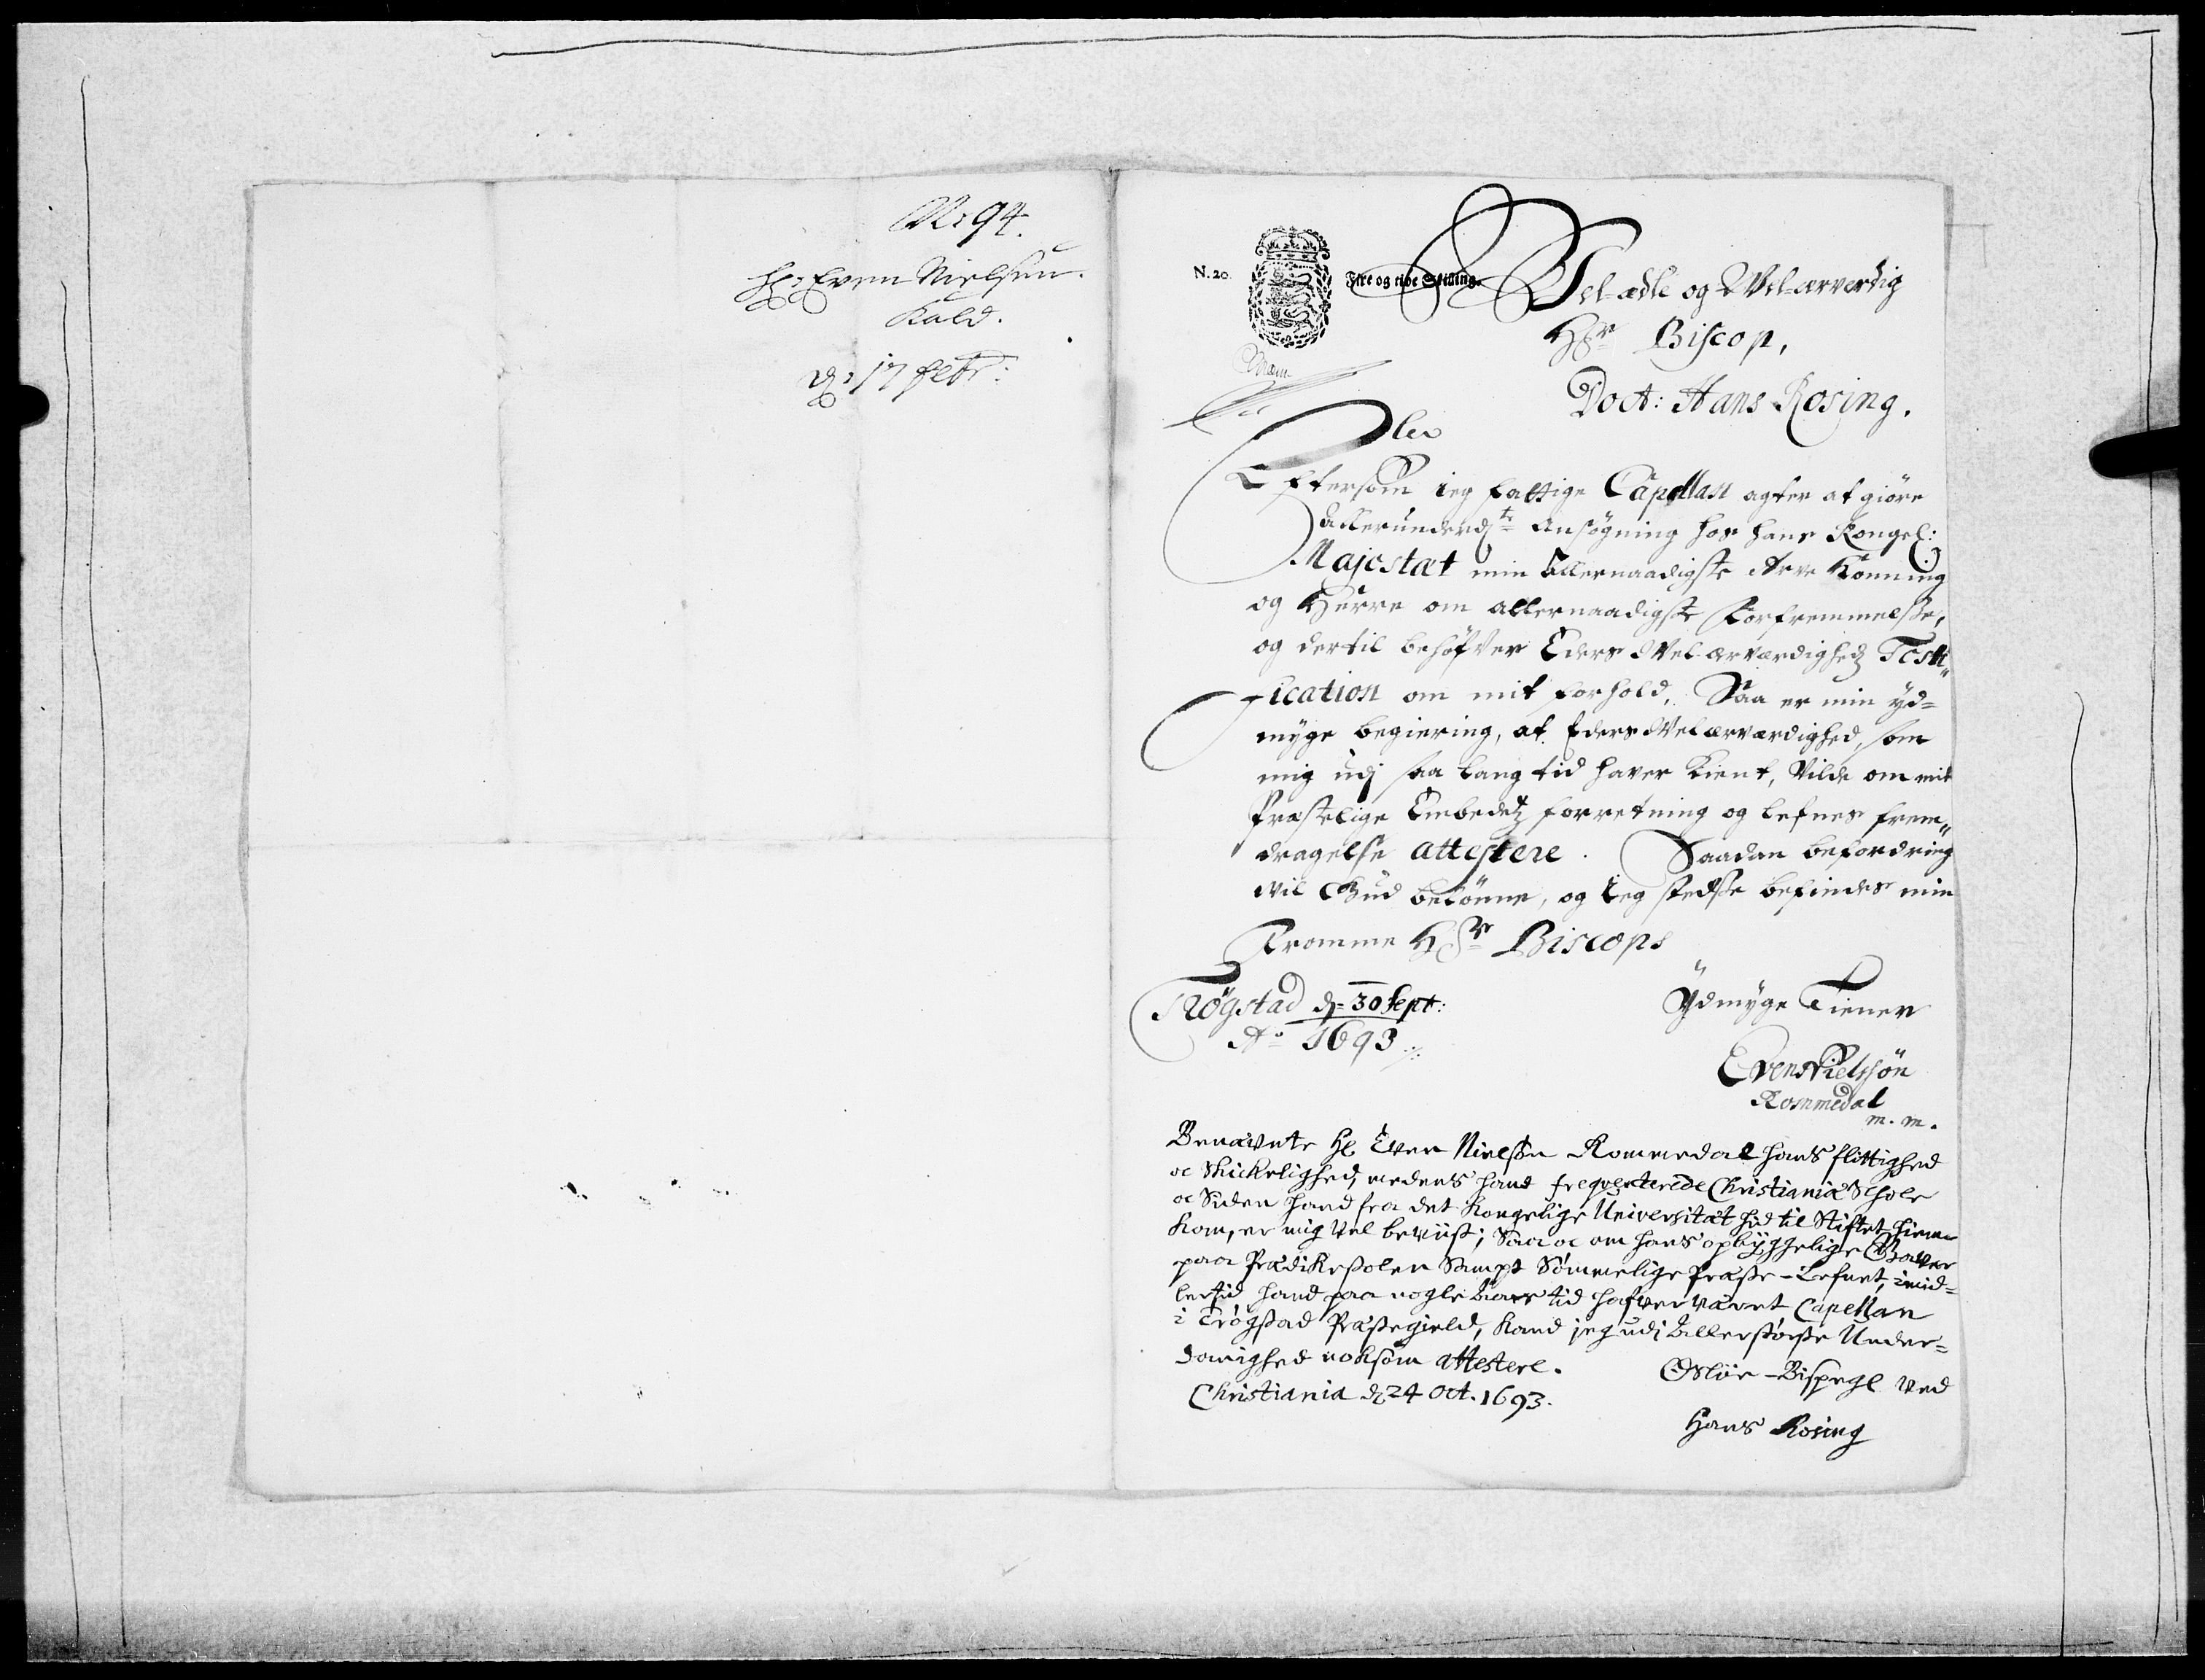 No: 94.
Hr: Even Nielsen.
Kald.
d: 17 Febr:
N. 20.
Fire og tive Skilling.
Vel-ædle og Wel-ærverdig
Hr Biscop,
Doct: Hans Rosing.
Eftersom ieg fattige Capellan agter at giöre
allerunderdte Ansøgning hos hans Kongel:
Majestæt min Allernaadigste Arve Konning
og Herre om allernaadigste Forfremmelsse,
og dertil behøfver Eders Wel-ærværdighed Testi„
fication om mit forhold. Saa er min yd=
myge begiering, at Eders Welærværdighed, som
mig udj saa lang tid haver kient, Vilde om mit
Præstelige Embedetz forretning og lefnes frem„
dragelse attestere. Saadan befordring
vil Gud belönne, og ieg stedsse befindes min
Fromme Hr Biscops
Trögstad d= 30 Sept:
Ao 1693
Ydmyge Tiener
Even Nielssön
Rommedal
m. m.
Benævnte Hr Even Nielsen Rommedal hans flittighed
oc Skickelighed, medens hand freqventerede Christianiæ Schole
oc Siden hand fra det Kongelige Universitæt hid til Stiftet hiem
kom, er mig Vel beviist; Saa oc om hans opbyggelige Gaver
paa Prædikestolen Sampt Sømmelige Præste-Lefnet, imid=
lertid hand paa nogle Aars tid hafver været Capellan
i Trögstad Præstegield, kand jeg udj Allerstörste Under=
danighed noksom attestere.
Christiania d 24 Oct. 1693.
Osloe-Bispegl ved
Hans Rosing